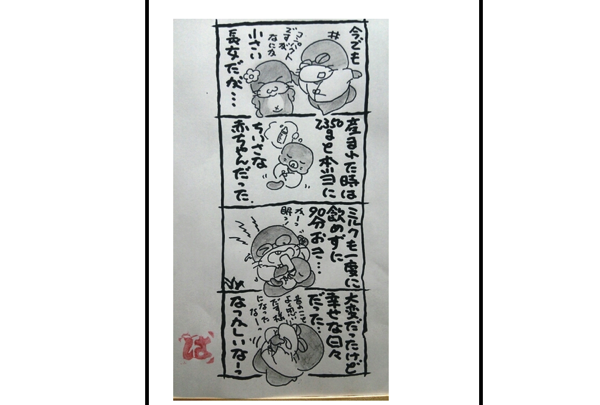 今でも
コンパクト
ですが
なにか
小さい
長女だが…
産まれた時は
2350gと本当に
ちいさな
赤ちゃんだった。
ミルクも一度に
飲めずに
90分おき…
大変だったけど
幸せな日々
だった…
昔のこと
よう思い
だす様
になった
なーっ
なつかしいなーっ
ば